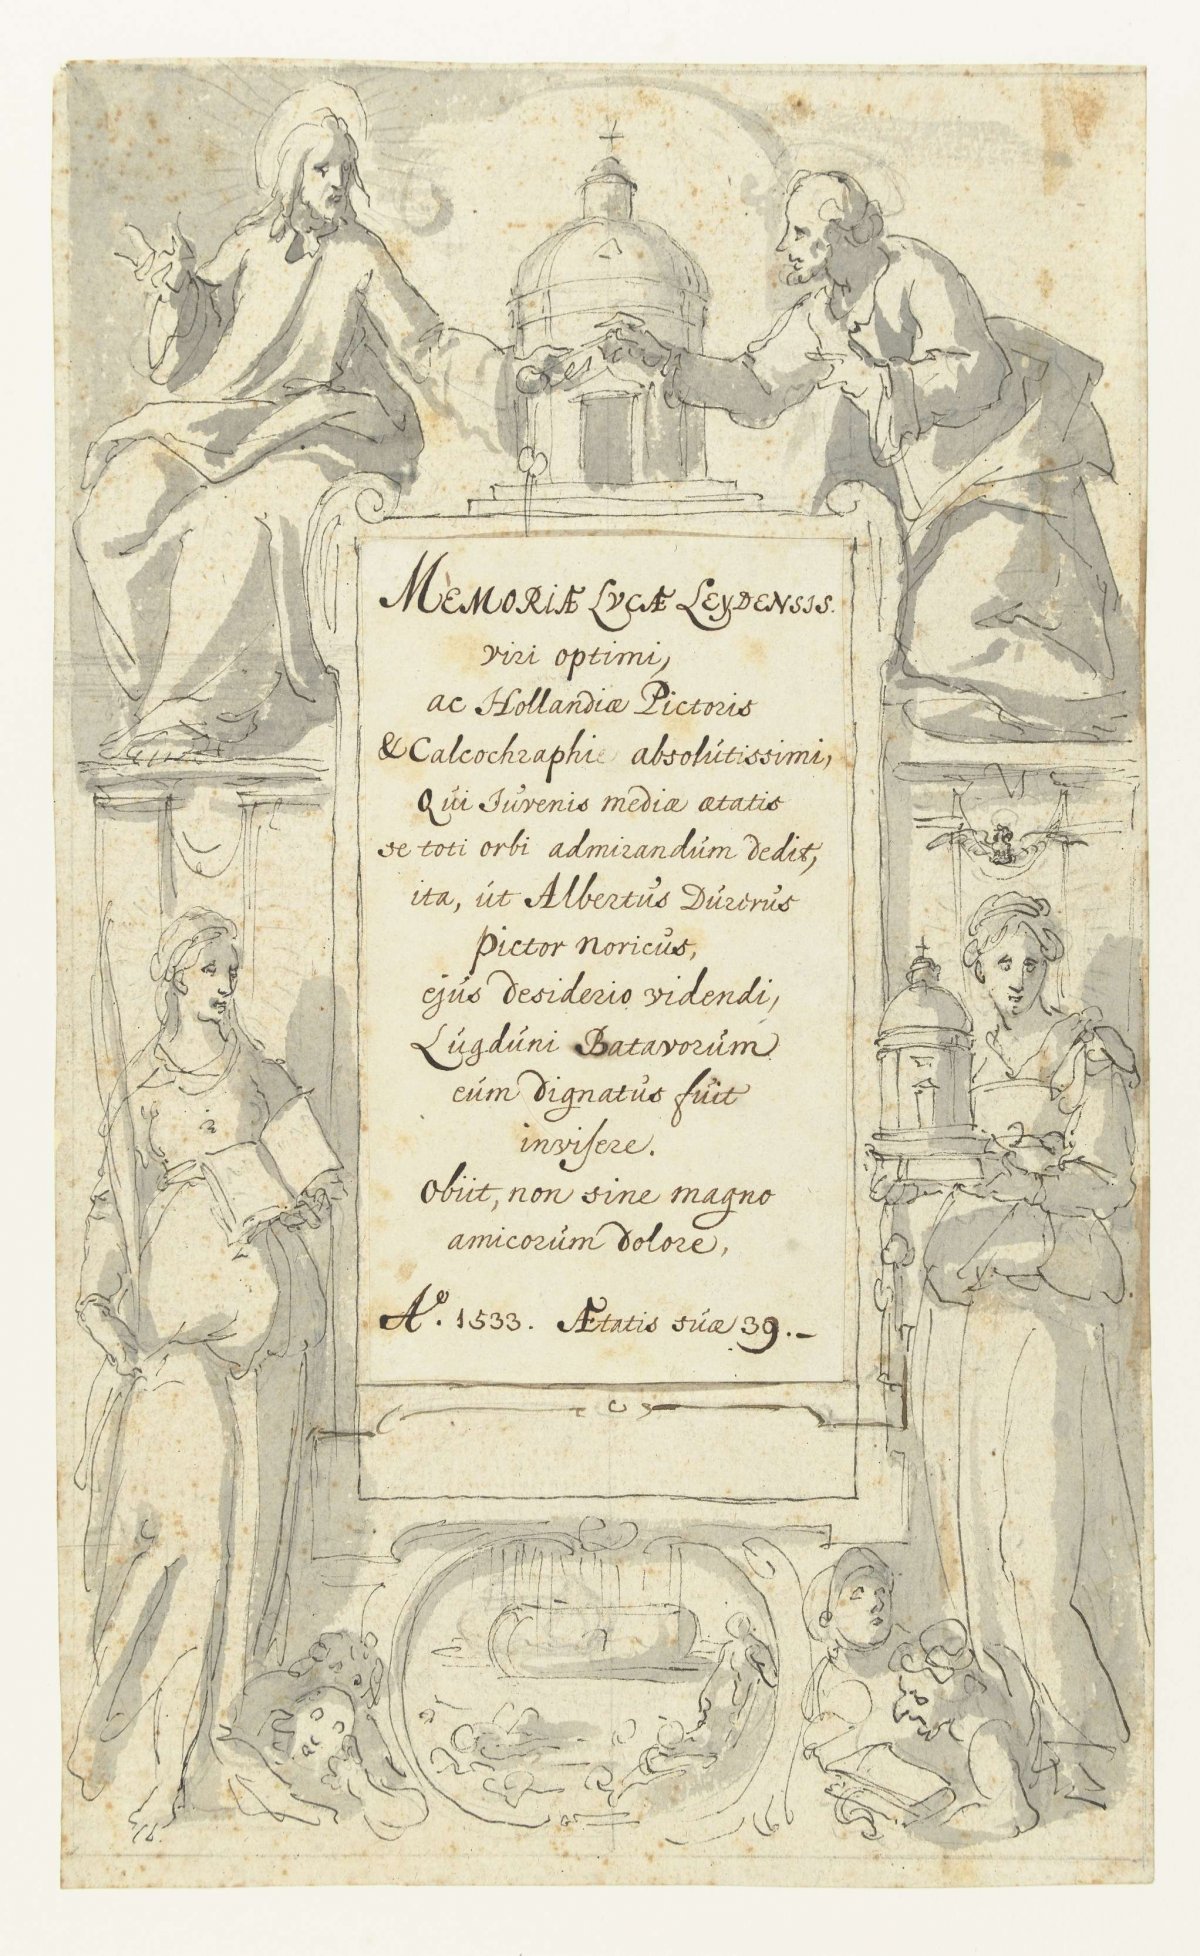 MEMORIÆ LVCÆ LEYDENSIS.
viri optimi,
ac Hollandiæ Pictoris
& Calcochraphi absolutissimi,
Qui Iuvenis mediæ ætatis
se toti orbi admirandum dedit,
ita, ut Albertus Durerus
Pictor Noricus,
ejus desiderio videndi,
Lugduni Batavorum
eum dignatus fuit
invisere.
Obiit, non sine magno
amicorum dolore,
Aº. 1533. Ætatis suæ 39.